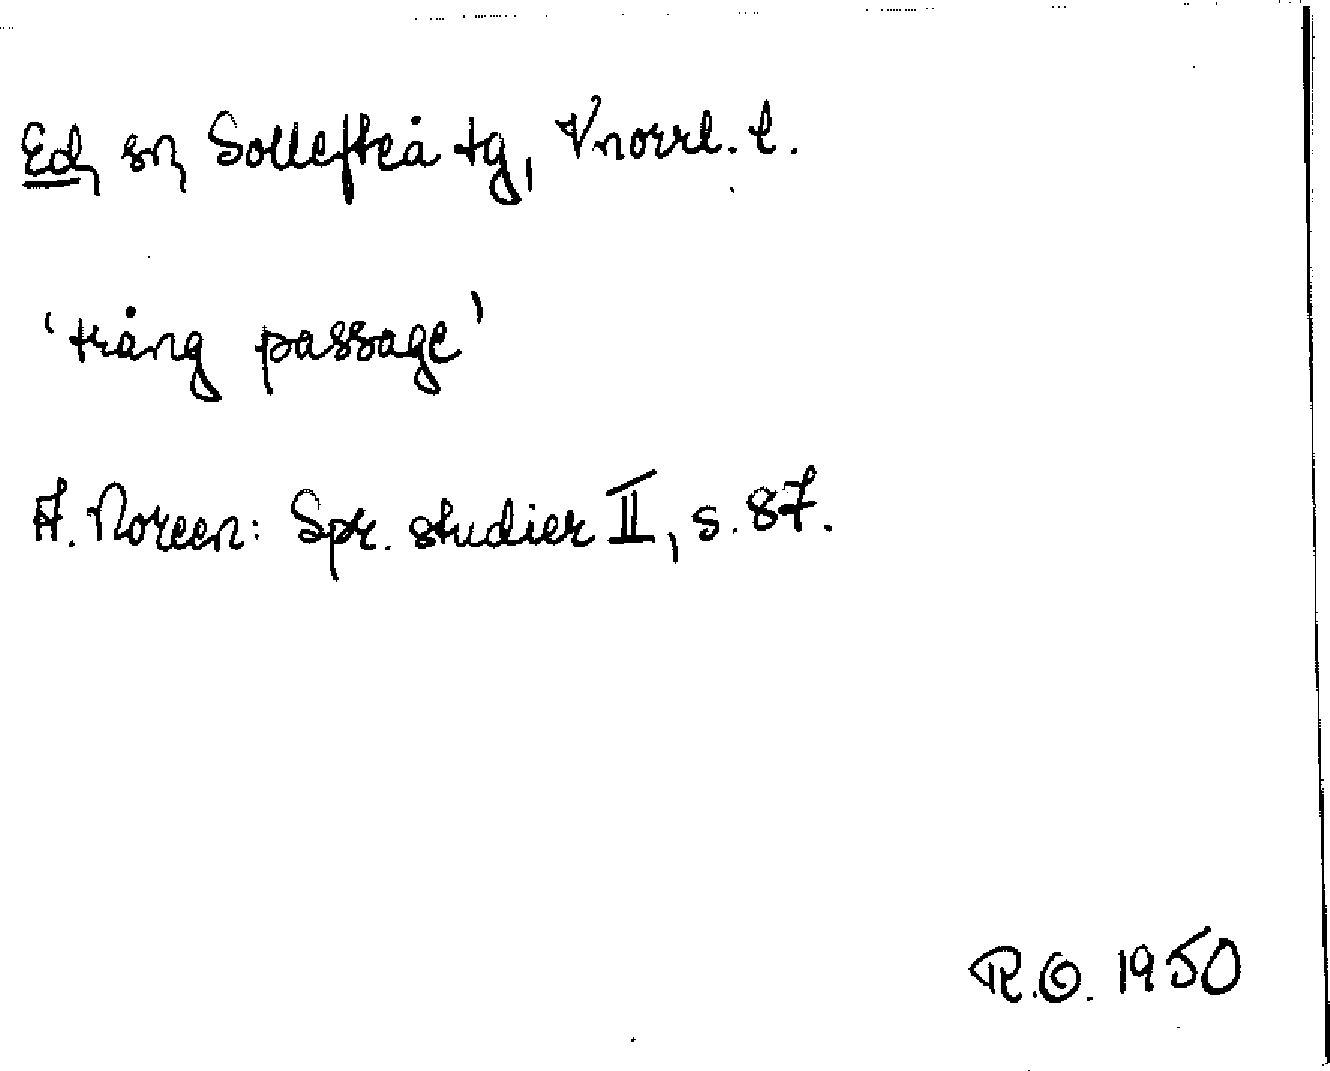 Ed, sn, Sollefteå tg, Vnorrl. l.
'trång passage'
A. Noreen: Spr. studier II, s. 87.
R.O. 1950